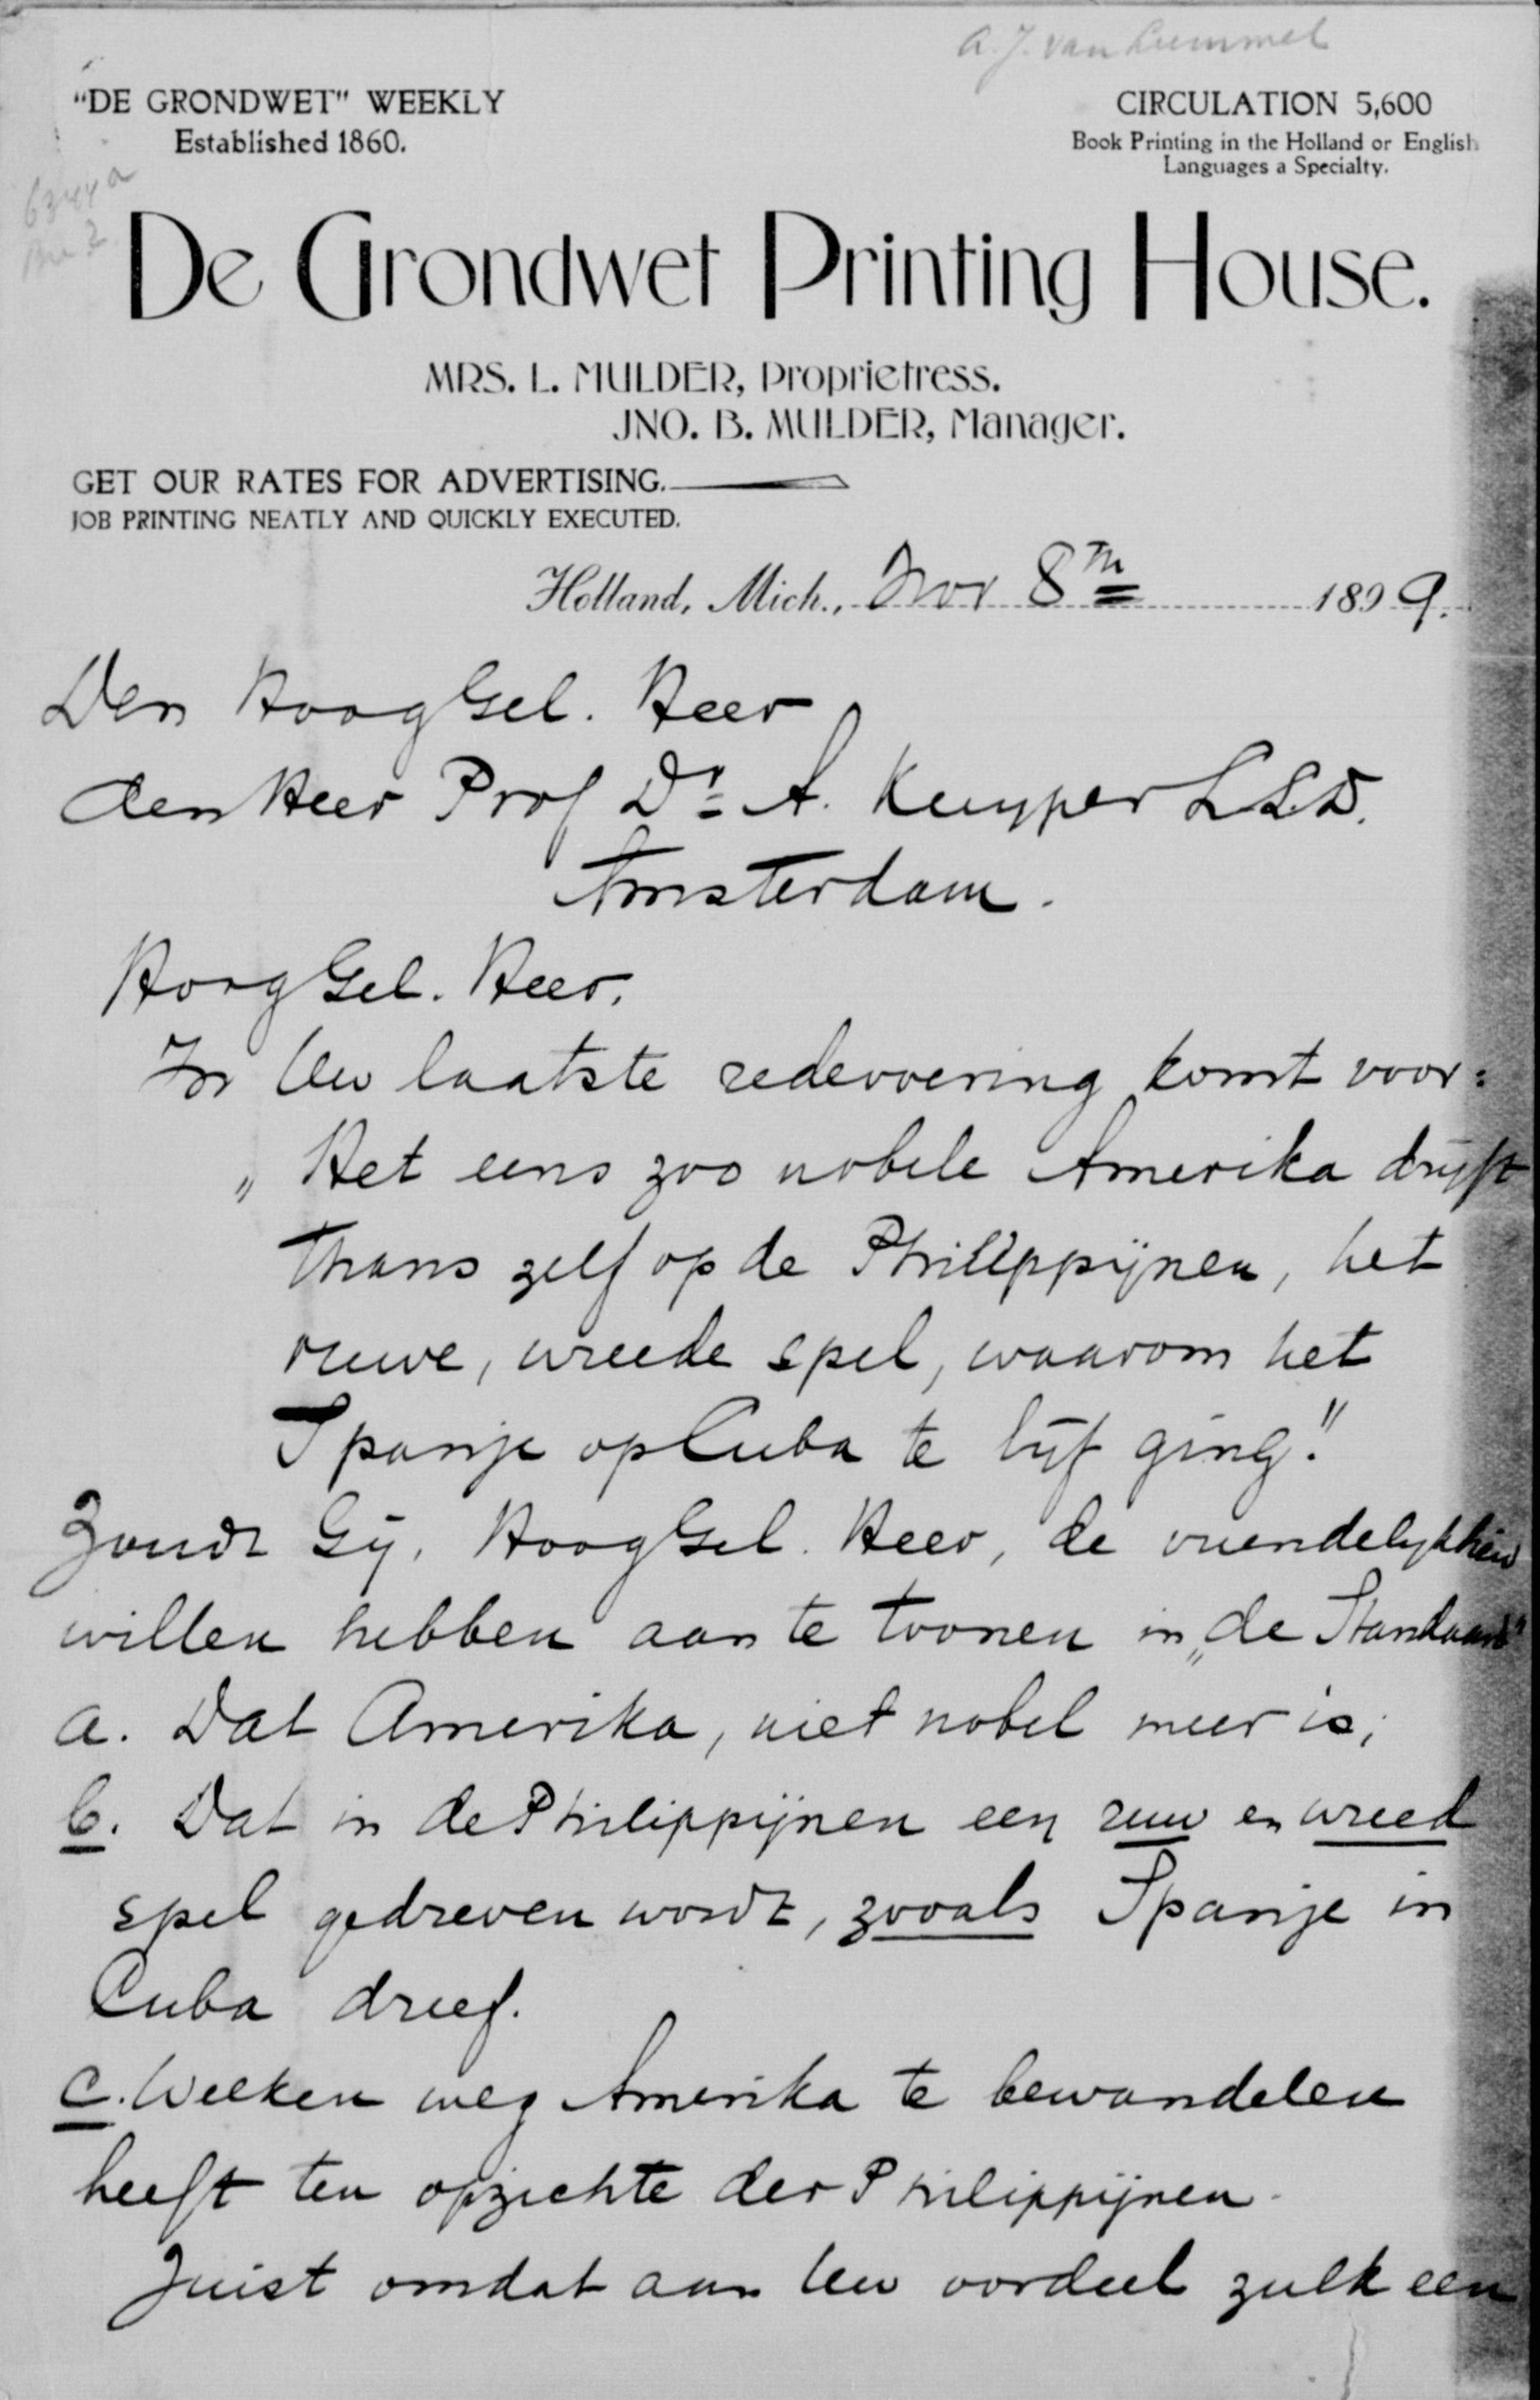 A. J. van Lummel
"DE GRONDWET" WEEKLY
Established 1860.
CIRCULATION 5,600
Book Printing in the Holland or English
Languages a Specialty.
De Grondwet Printing House.
MRS. L. MULDER, Proprietress.
JNO. B. MULDER, Manager.
GET OUR RATES FOR ADVERTISING.
JOB PRINTING NEATLY AND QUICKLY EXECUTED.
Holland, Mich., Nov 8th 1899.
Den HoogGel. Heer
den Heer Prof Dr. A. Kuyper L.L.D.
Amsterdam.
HoogGel. Heer,
In Uw laatste redevoering komt voor:
„Het eens zoo nobele Amerika drijft
thans zelf op de Philippijnen, het
ruwe, wreede spel, waarom het
Spanje op Cuba te lijf ging."
Zoudt Gij, HoogGel. Heer, de vriendelijkheid
willen hebben aan te toonen in „de Standaard"
a. Dat Amerika, niet nobel meer is;
b. Dat in de Philippijnen een ruw en wreed
spel gedreven wordt, zooals Spanje in
Cuba dreef.
c. Welken weg Amerika te bewandelen
heeft ten opzichte der Philippijnen.
Juist omdat aan Uw oordeel zulk een